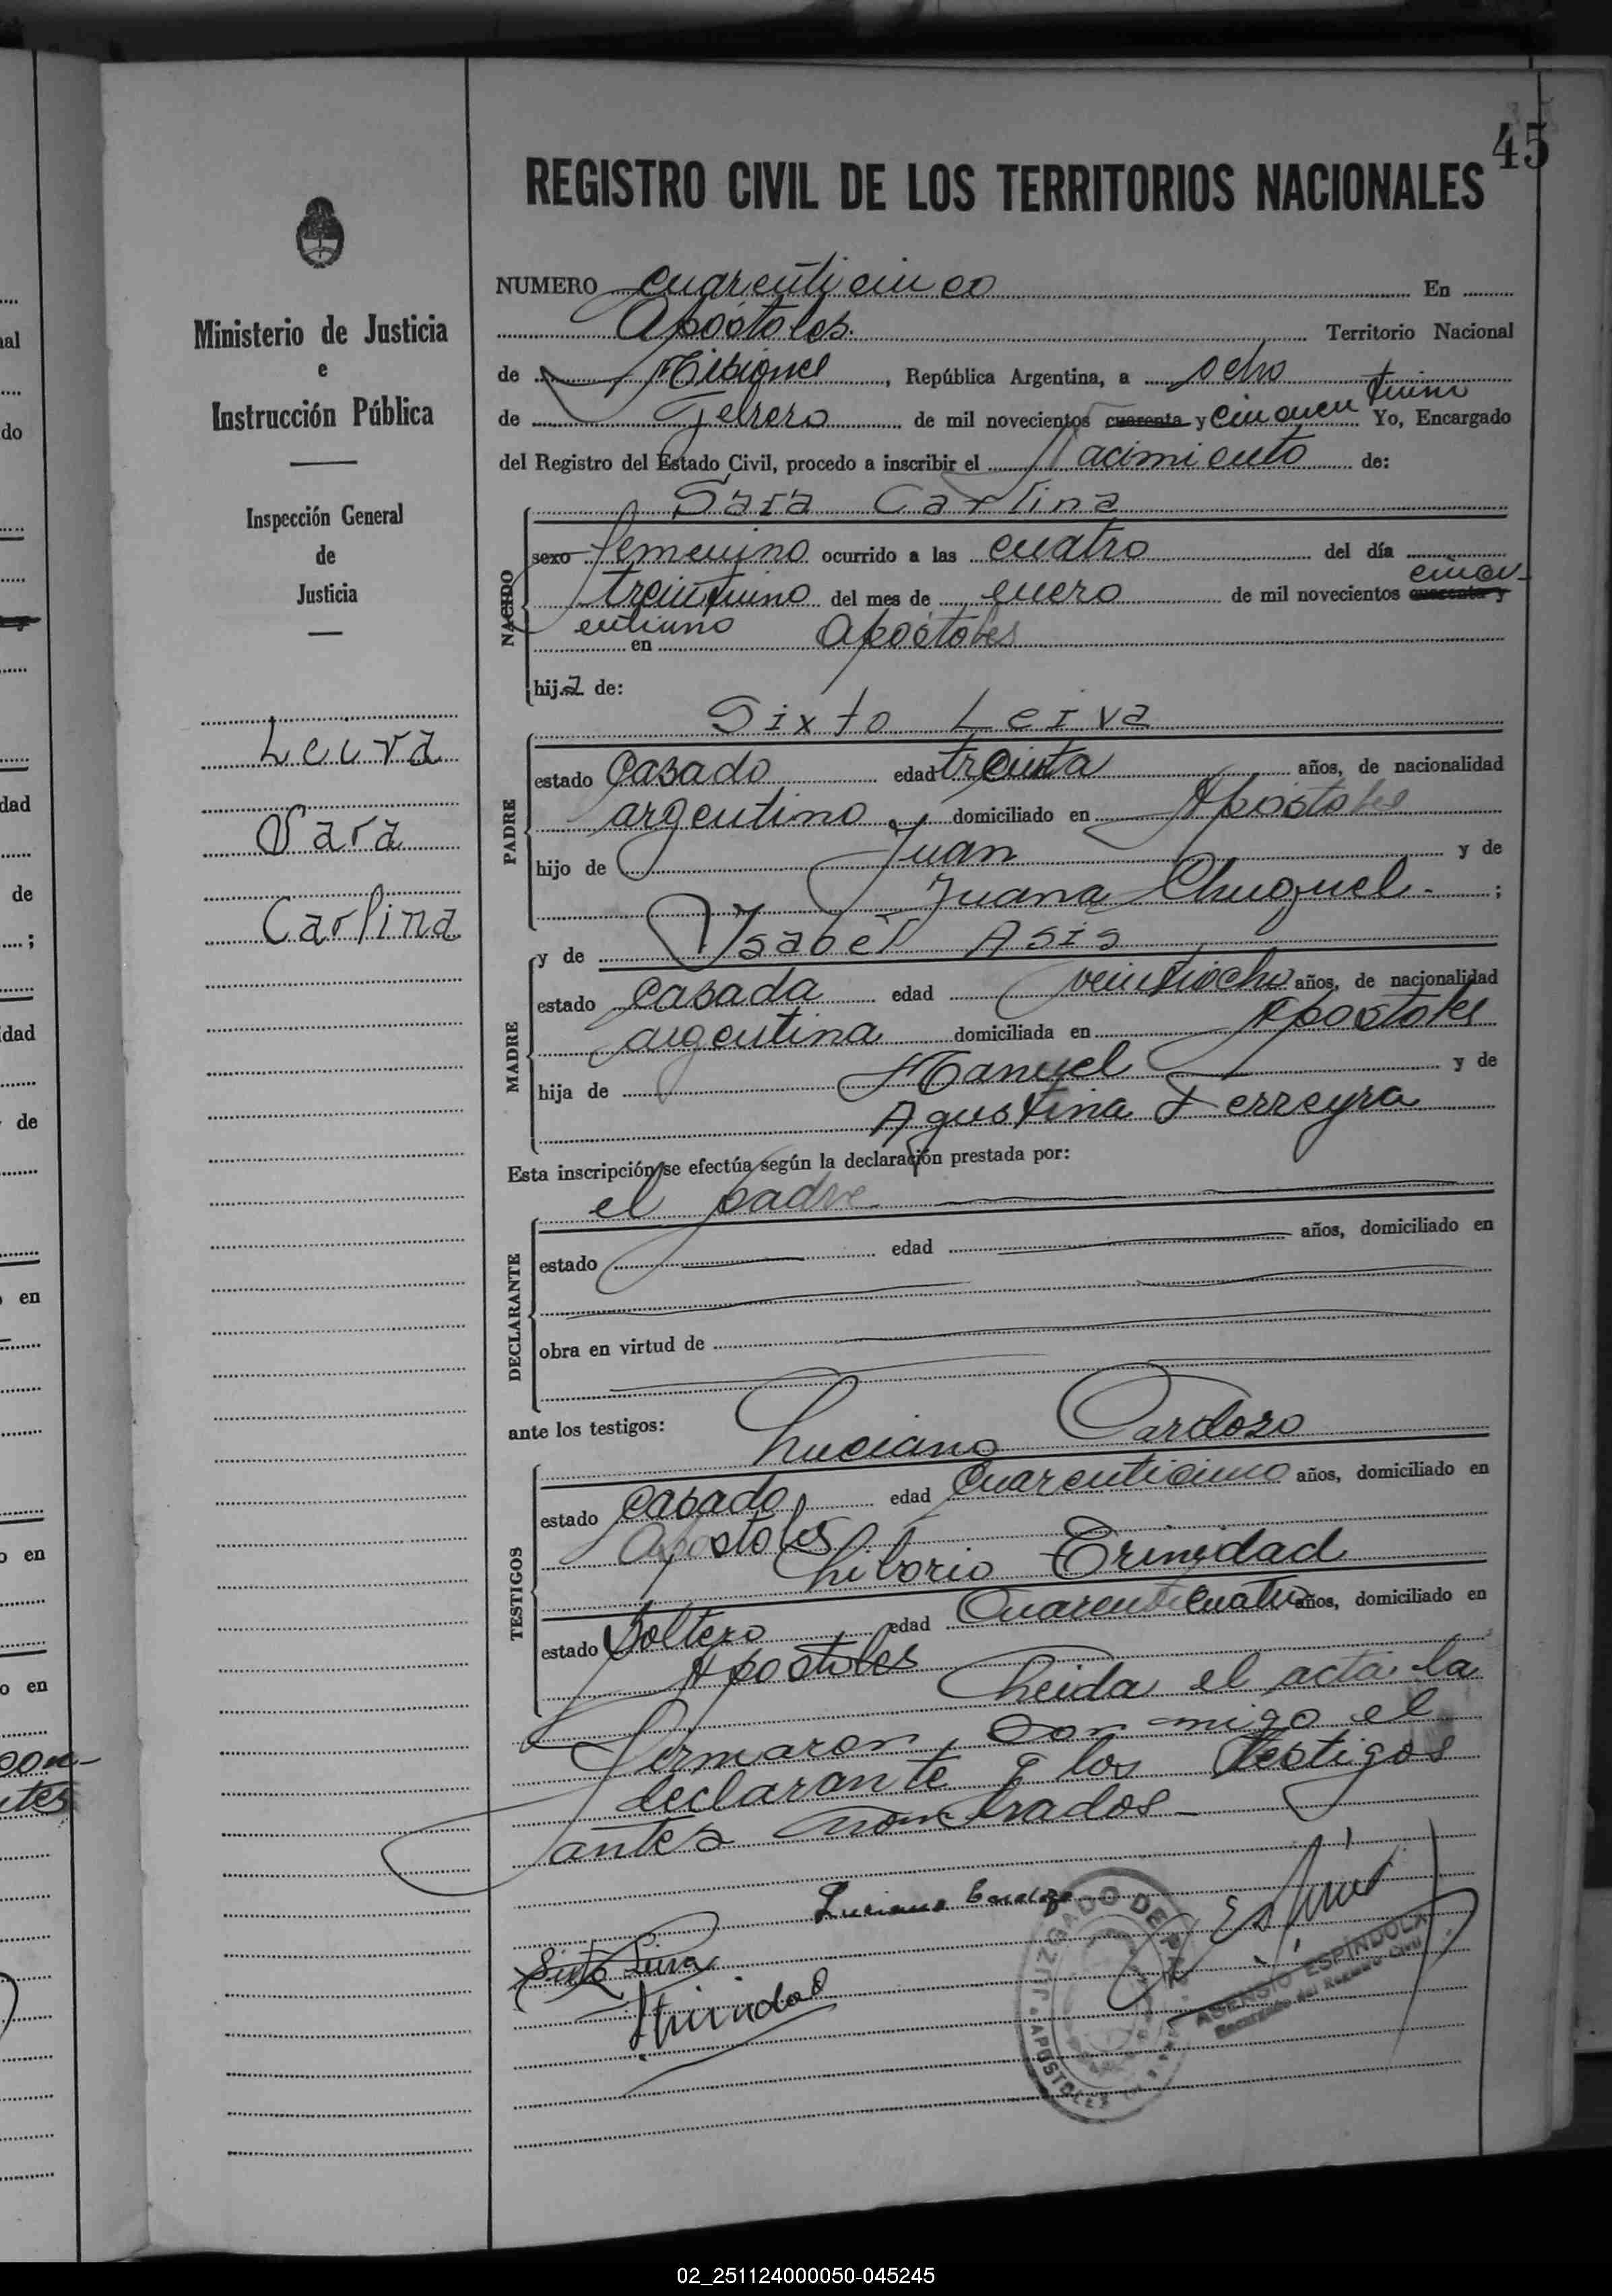 45
REGISTRO CIVIL DE LOS TERRITORIOS NACIONALES
Ministerio de Justicia
e
Instrucción Pública
Inspección General
de
Justicia
Leiva
Sara
Carlina
NUMERO cuarenticinco En
Apóstoles. Territorio Nacional
de Misiones, República Argentina, a ocho
de Febrero de mil novecientos cuarenta y cincuentiuno Yo, Encargado
del Registro del Estado Civil, procedo a inscribir el Nacimiento de:
Sara Carlina
NACIDO
sexo femenino ocurrido a las cuatro del día
treintiuno del mes de enero de mil novecientos cuarenta y cincu-
entiuno en Apóstoles
hija de:
Sixto Leiva
PADRE
estado Casado edad treinta años, de nacionalidad
argentino domiciliado en Apóstoles
hijo de Juan y de
Juana Chuquel ;
MADRE
y de Ysabel Asis
estado Casada edad veintiocho años, de nacionalidad
argentina domiciliada en Apóstoles
hija de Manuel y de
Agustina Ferreyra
Esta inscripción se efectúa según la declaración prestada por:
el padre
DECLARANTE
estado edad años, domiciliado en
obra en virtud de
ante los testigos: Luciano Cardozo
TESTIGOS
estado Casado edad Cuarenticinco años, domiciliado en
Apostoles
Liborio Trinidad
estado Soltero edad Cuarenticuatro años, domiciliado en
Apostoles
Leida el acta la
firmaron conmigo el
declarante y los testigos
antes nombrados
Luciano Cardozo
Sixto Leiva
Trinidad
JUZGADO DE PAZ
APOSTOLES
ASENSIO ESPINDOLA
Encargado del Registro Civil
al
do
dad
de
;
dad
de
en
en
en
con-
tes
02_251124000050-045245